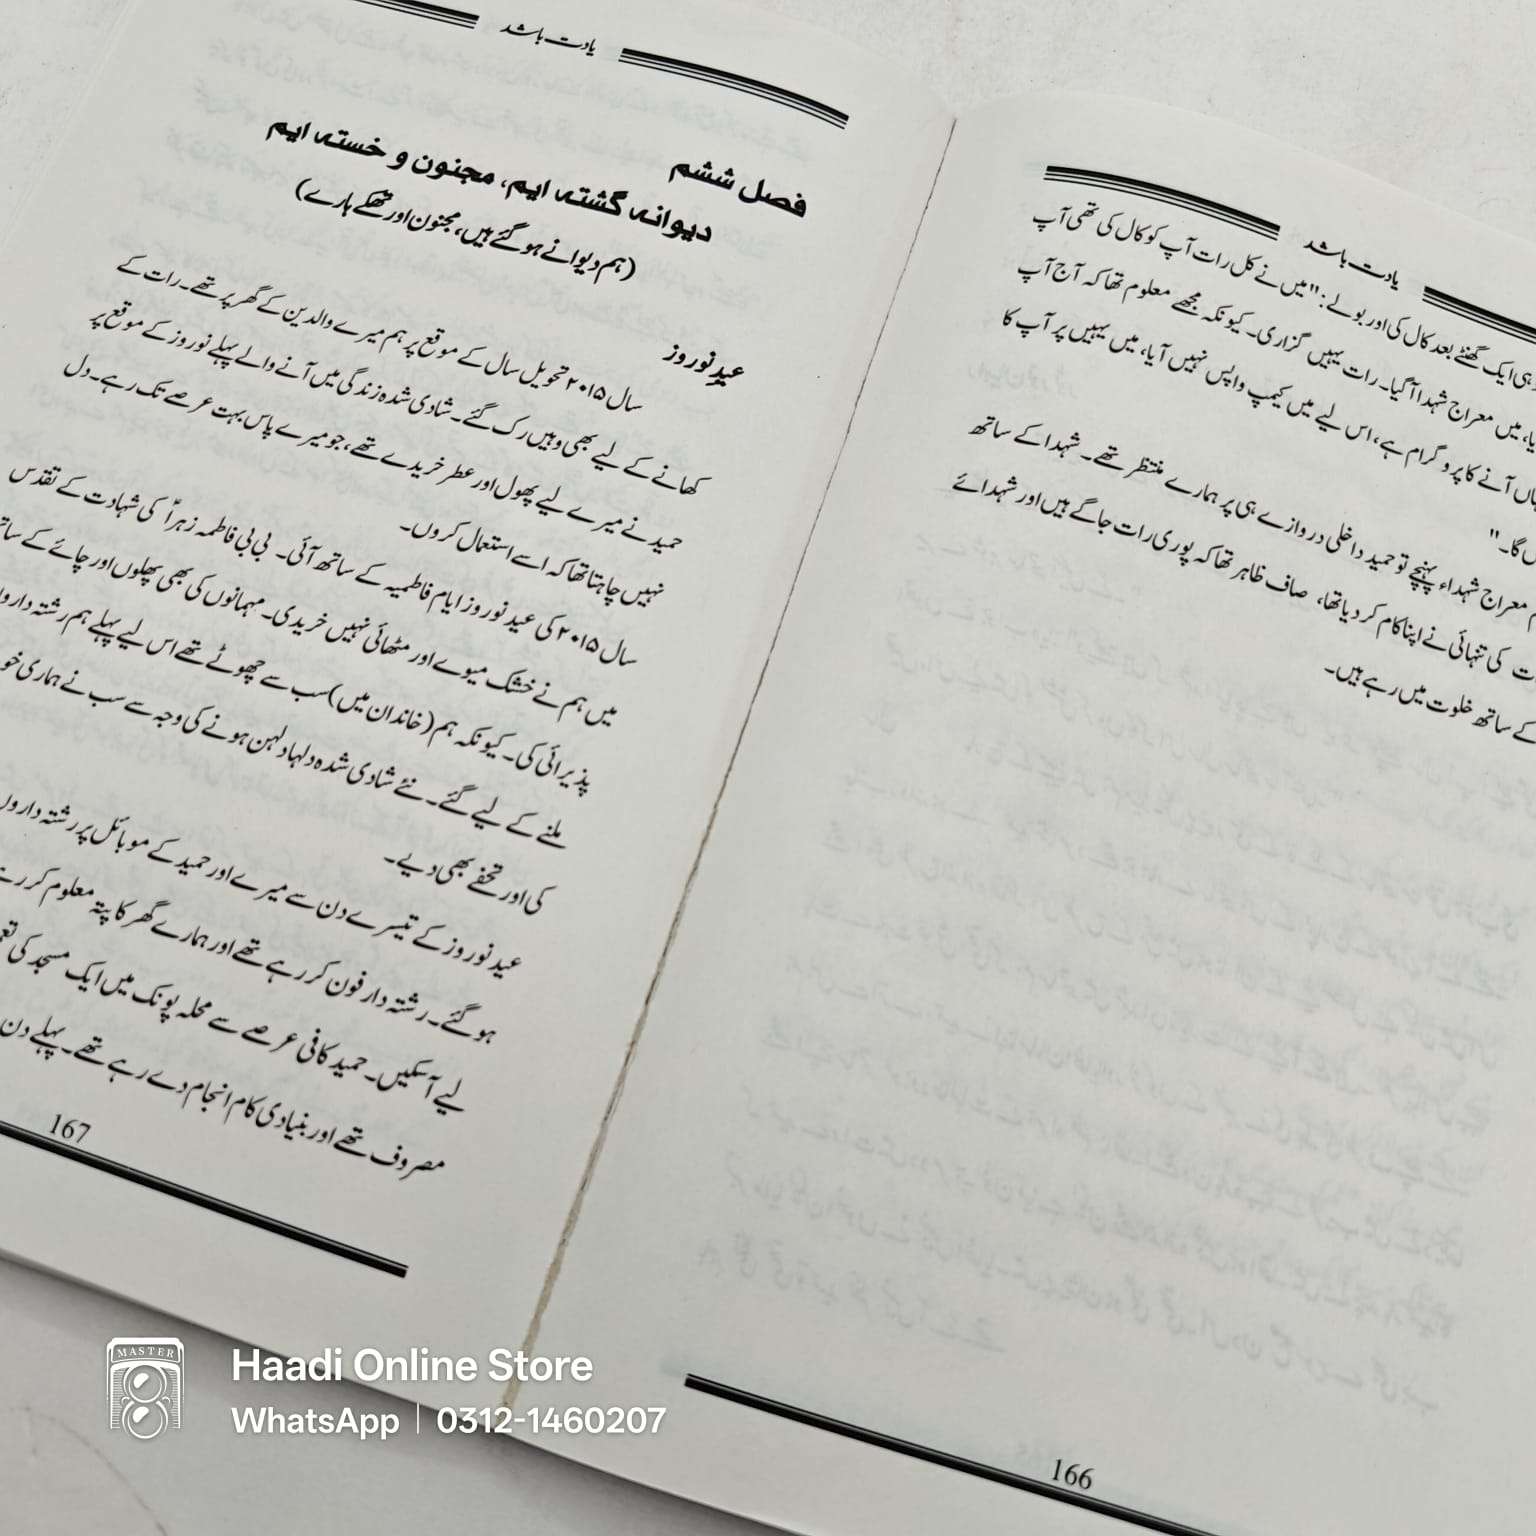 یادت باشد
ہی ایک گھنٹے بعد کال کی اور بولے: "میں نے کل رات آپ کو کال کی تھی آپ
میں معراج شہدا آ گیا۔ رات یہیں گزاری۔ کیونکہ مجھے معلوم تھا کہ آج آپ
آنے کا پروگرام ہے، اس لیے میں کیمپ واپس نہیں آیا، میں یہیں پر آپ کا
گا۔"
معراج شہداء پہنچے تو حمید داخلی دروازے ہی پر ہمارے منتظر تھے۔ شہدا کے ساتھ
کی تنہائی نے اپنا کام کر دیا تھا، صاف ظاہر تھا کہ پوری رات جاگے ہیں اور شہدائے
کے ساتھ خلوت میں رہے ہیں۔
166
یادت باشد
فصل ششم
دیوانہ گشتہ ایم، مجنون و خستہ ایم
(ہم دیوانے ہو گئے ہیں، مجنون اور تھکے ہارے)
عید نوروز
سال ۲۰۱۵ تحویل سال کے موقع پر ہم میرے والدین کے گھر پر تھے۔ رات کے
کھانے کے لیے بھی وہیں رک گئے۔ شادی شدہ زندگی میں آنے والے پہلے نوروز کے موقع پر
حمید نے میرے لیے پھول اور عطر خریدے تھے، جو میرے پاس بہت عرصے تک رہے۔ دل
نہیں چاہتا تھا کہ اسے استعمال کروں۔
سال ۲۰۱۵ کی عید نوروز ایام فاطمیہ کے ساتھ آئی۔ بی بی فاطمہ زہراؑ کی شہادت کے تقدس
میں ہم نے خشک میوے اور مٹھائی نہیں خریدی۔ مہمانوں کی بھی پھلوں اور چائے کے
پذیرائی کی۔ کیونکہ ہم (خاندان میں) سب سے چھوٹے تھے اس لیے پہلے ہم رشتہ
ملنے کے لیے گئے۔ نئے شادی شدہ دولہا دلہن ہونے کی وجہ سے سب نے ہماری
کی اور تحفے بھی دیے۔
عید نوروز کے تیسرے دن سے میرے اور حمید کے موبائل پر رشتہ
ہو گئے۔ رشتہ دار فون کر رہے تھے اور ہمارے گھر کا پتہ معلوم کر
لیے آ سکیں۔ حمید کافی عرصے سے محلہ پونک میں ایک مسجد کی
مصروف تھے اور بنیادی کام انجام دے رہے تھے۔ پہلے دن
167
MASTER
Haadi Online Store
WhatsApp | 0312-1460207